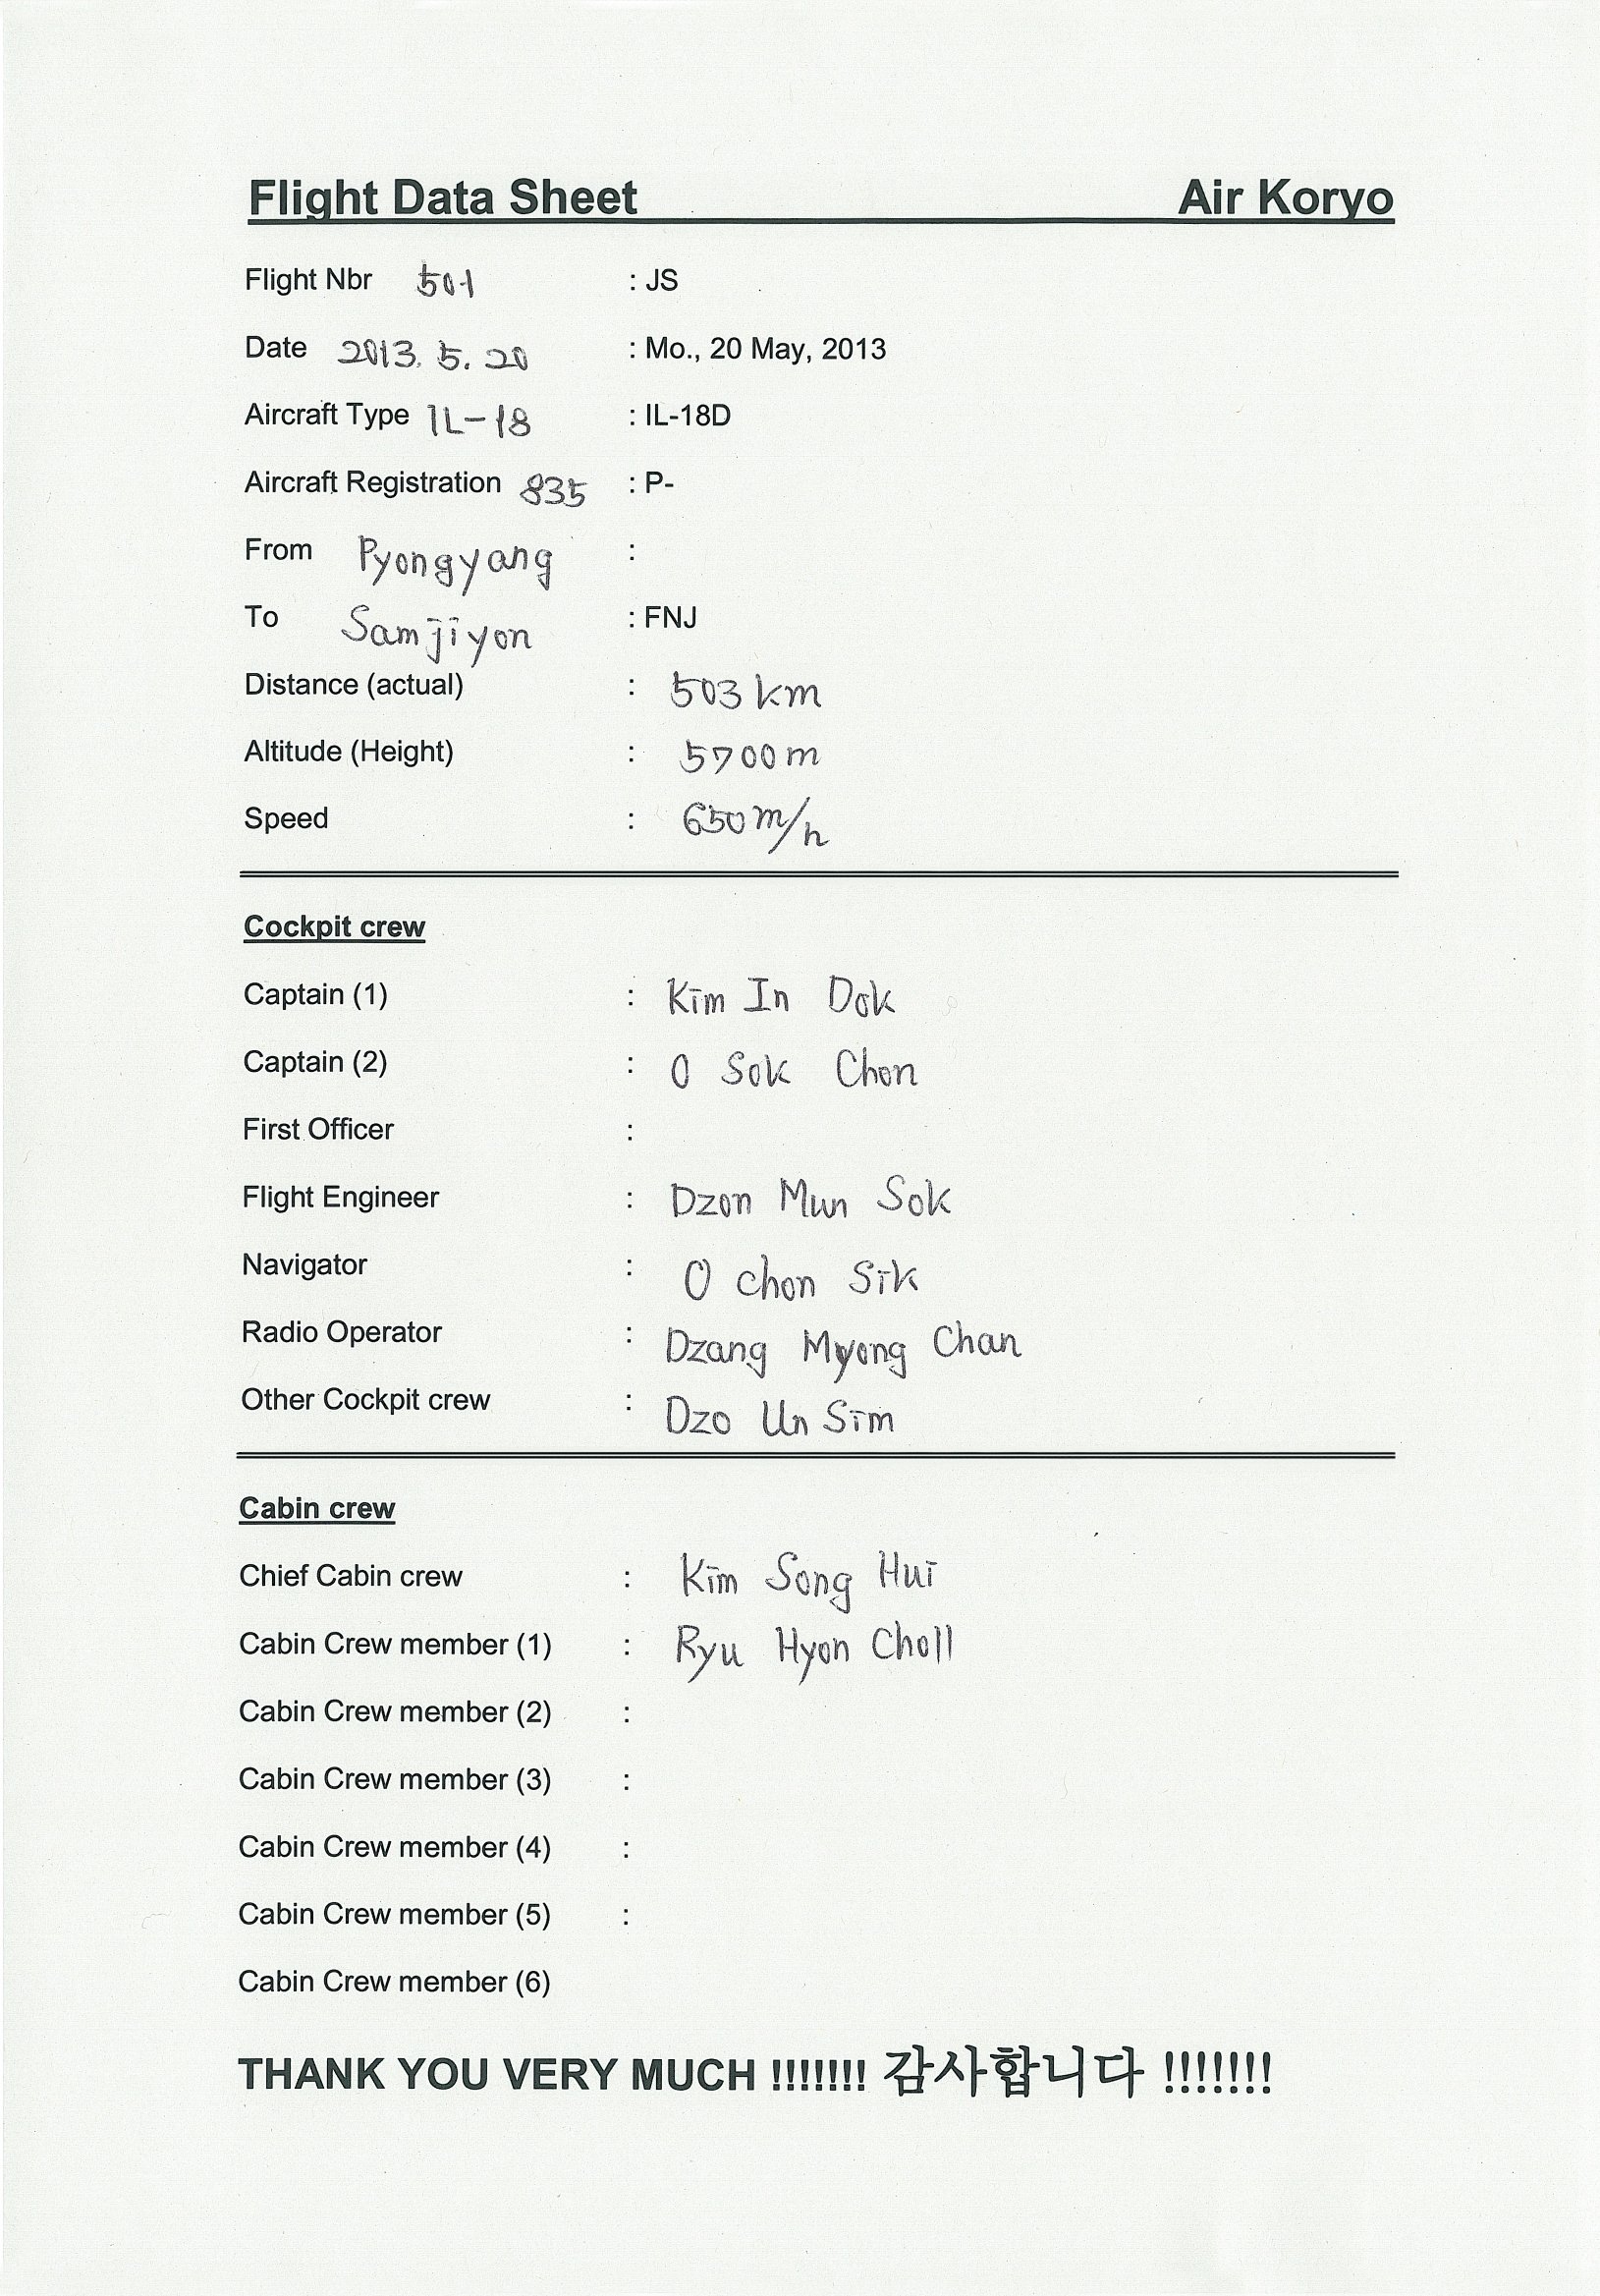 Flight Data Sheet Air Koryo
Flight Nbr 501 : JS
Date 2013. 5. 20 : Mo., 20 May, 2013
Aircraft Type IL-18 : IL-18D
Aircraft Registration 835 : P-
From Pyongyang :
To Samjiyon : FNJ
Distance (actual) : 503 km
Altitude (Height) : 5700 m
Speed : 650 m/h
Cockpit crew
Captain (1) : Kim In Dok
Captain (2) : O Sok Chon
First Officer :
Flight Engineer : Dzon Mun Sok
Navigator : O chon Sik
Radio Operator : Dzang Myong Chan
Other Cockpit crew : Dzo Un Sim
Cabin crew
Chief Cabin crew : Kim Song Hui
Cabin Crew member (1) : Ryu Hyon Choll
Cabin Crew member (2) :
Cabin Crew member (3) :
Cabin Crew member (4) :
Cabin Crew member (5) :
Cabin Crew member (6)
THANK YOU VERY MUCH !!!!!!! 감사합니다 !!!!!!!